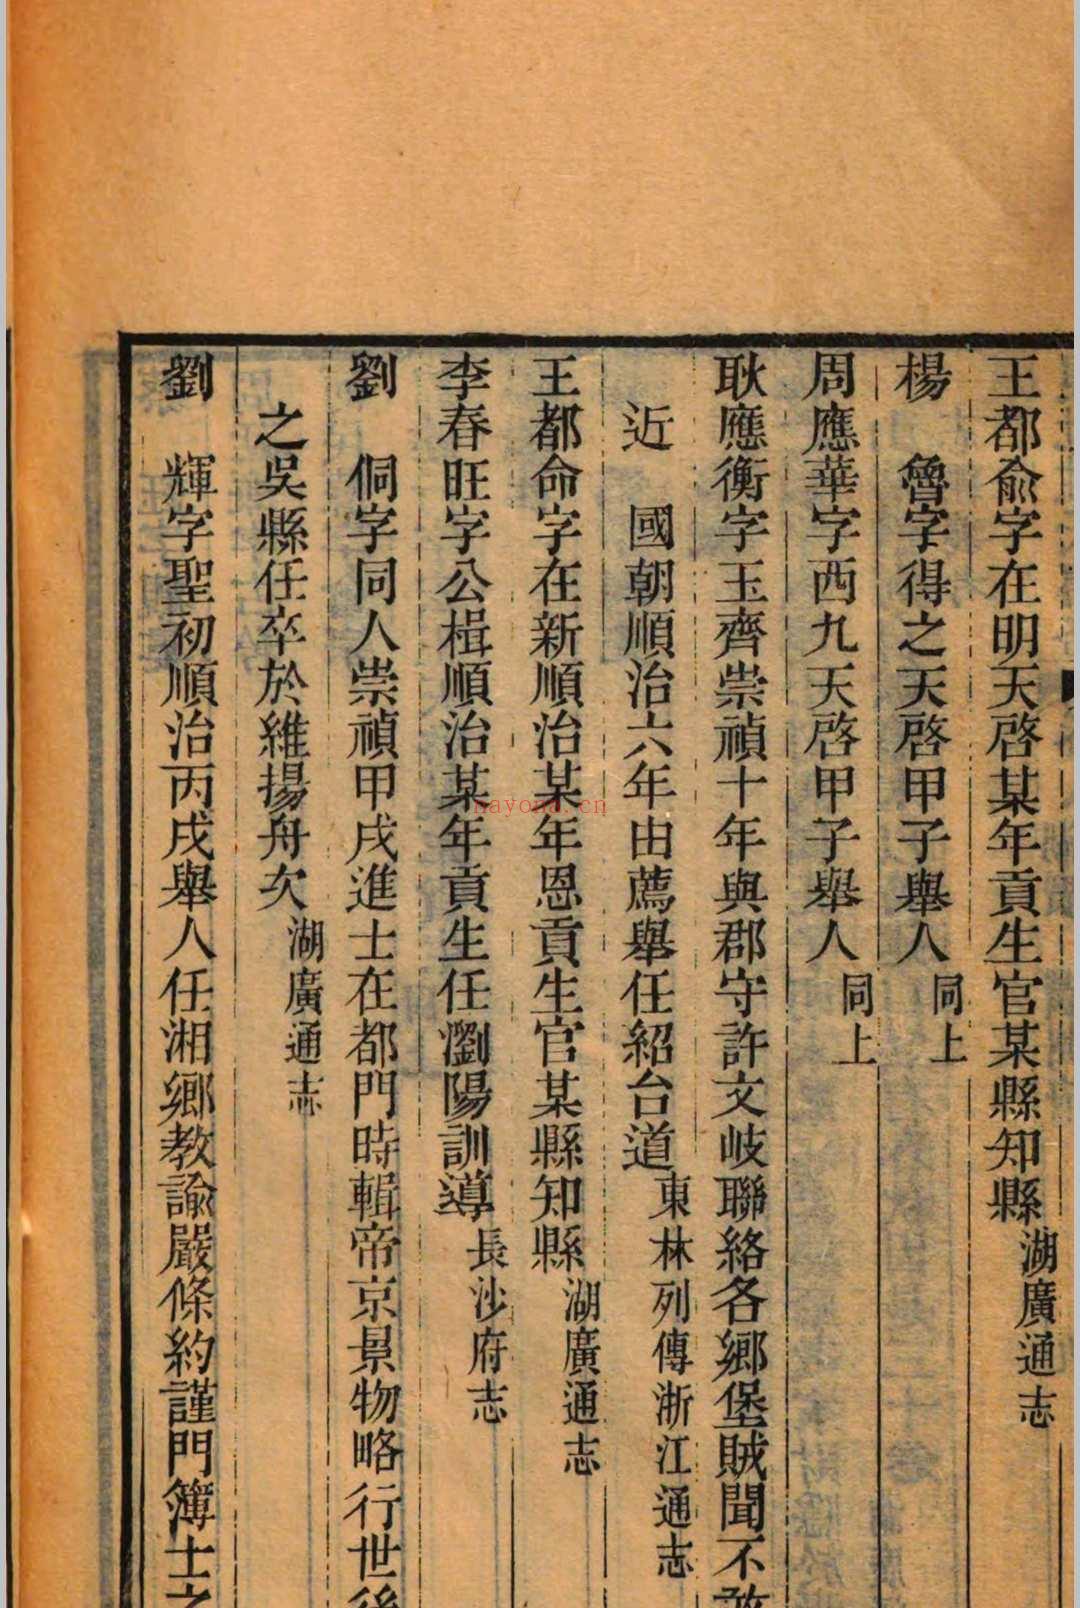 王都俞字在明天啓某年貢生官某縣知縣湖廣通志
楊　魯字得之天啓甲子舉人同上
周應華字西九天啓甲子舉人同上
耿應衡字玉齊崇禎十年與郡守許文岐聯絡各鄉堡賊聞不敢
近　國朝順治六年由薦舉任紹台道東林列傳浙江通志
王都命字在新順治某年恩貢生官某縣知縣湖廣通志
李春旺字公楫順治某年貢生任瀏陽訓導長沙府志
劉　侗字同人崇禎甲戌進士在都門時輯帝京景物略行世後
之吳縣任卒於維揚舟次湖廣通志
劉　輝字聖初順治丙戌舉人任湘鄉教諭嚴條約謹門簿士之
nayona.cn